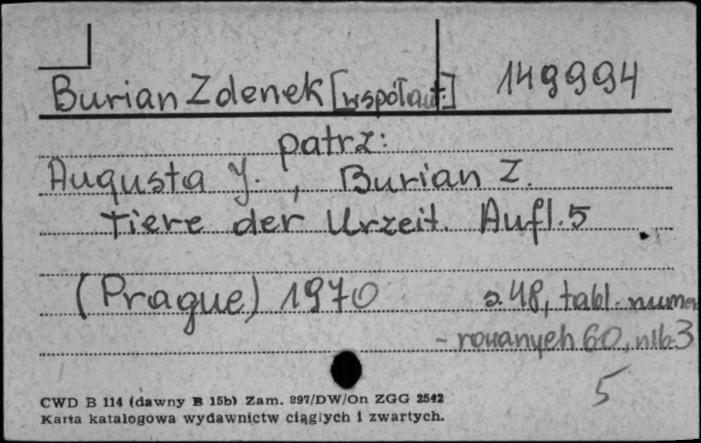 Burian Zdenek [współaut.] 149994
patrz:
Augusta J. , Burian Z.
Tiere der Urzeit. Aufl. 5
(Prague) 1970 s. 48, tabl. nume
-rowanych 60, nlb. 3
5
CWD B 114 (dawny B 15b) Zam. 897/DW/On ZGG 2542
Karta katalogowa wydawnictw ciągłych i zwartych.